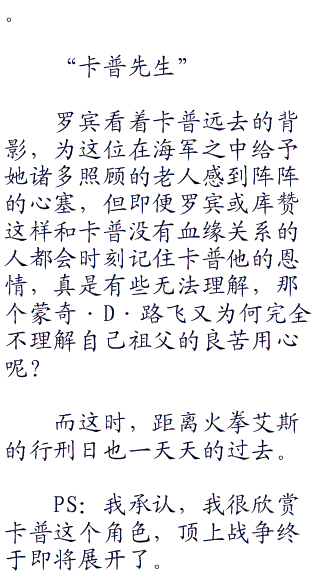 。
“卡普先生”
罗宾看着卡普远去的背
影，为这位在海军之中给予
她诸多照顾的老人感到阵阵
的心塞，但即便罗宾或库赞
这样和卡普没有血缘关系的
人都会时刻记住卡普他的恩
情，真是有些无法理解，那
个蒙奇·D·路飞又为何完全
不理解自己祖父的良苦用心
呢？
而这时，距离火拳艾斯
的行刑日也一天天的过去。
PS：我承认，我很欣赏
卡普这个角色，顶上战争终
于即将展开了。